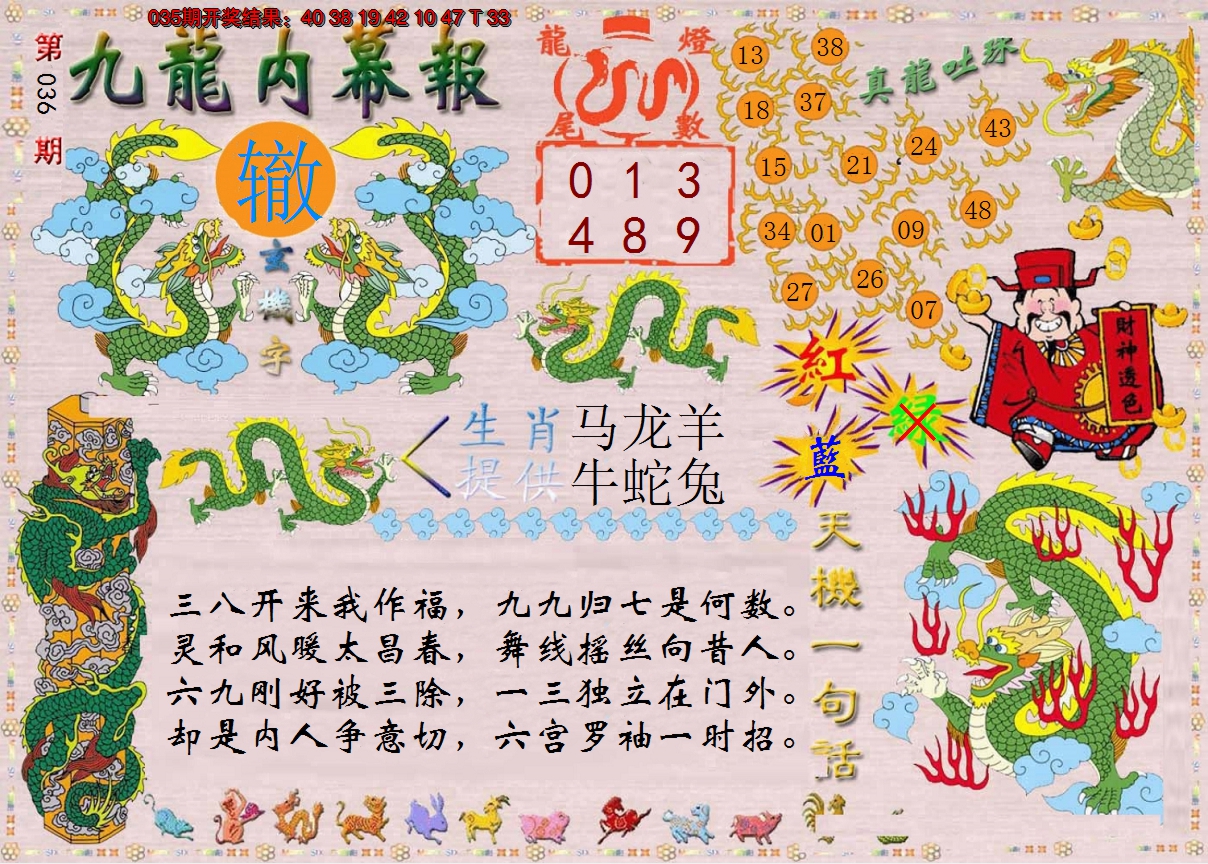 035期开奖结果：40 38 19 42 10 47 T 33
第036期
九龍内幕報
辙
玄機字
龍燈尾數
0 1 3
4 8 9
真龍吐珠
13
38
18
37
43
24
15
21
48
34
01
09
26
27
07
財神透色
紅
緑
藍
生肖 马龙羊
提供 牛蛇兔
天機一句話
三八开来我作福，九九归七是何数。
灵和风暖太昌春，舞线摇丝向昔人。
六九刚好被三除，一三独立在门外。
却是内人争意切，六宫罗袖一时招。